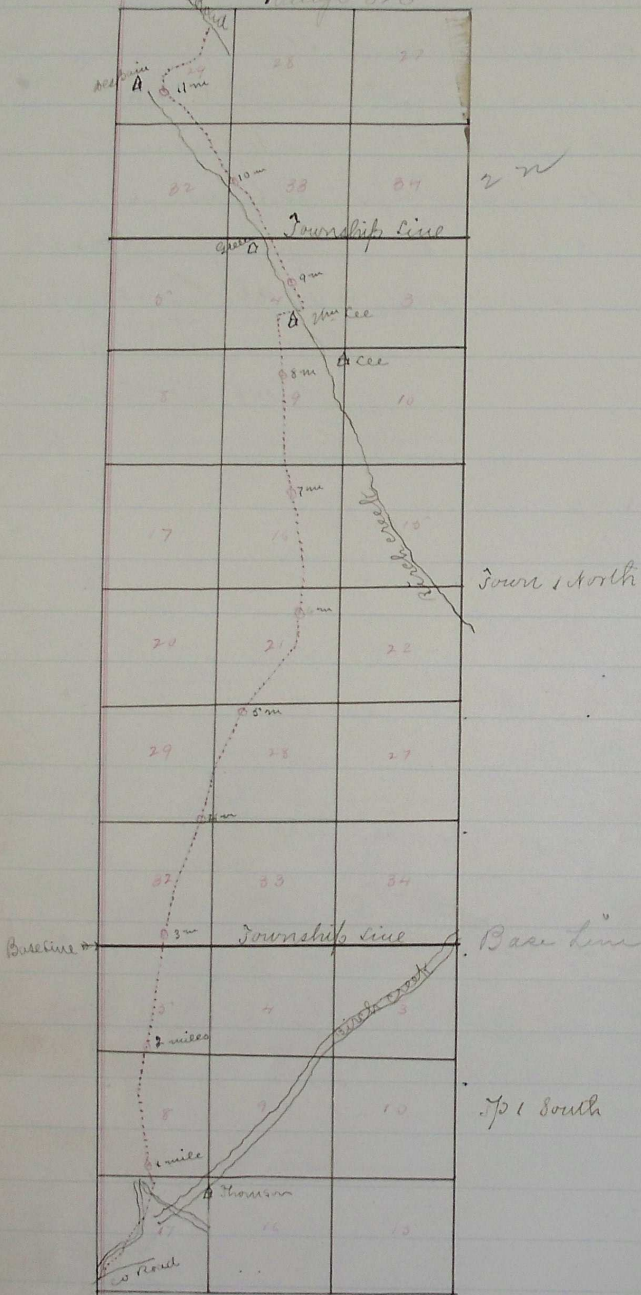 Road
29 28 27
Despain
11 m
10 m
32 33 34
2 N
Township Line
Green
9 m
5 4 3
Wm Cee
Cee
8 m
8 9 10
7 m
17 16 15
Birch creek
Town 1 North
20 21 22
5 m
29 28 27
4 m
32 33 34
3 m
Baseline
Township Line
Base Line
5 4 3
Birch Creek
2 miles
8 9 10
Tp 1 South
1 mile
Thomson
17 16 15
Co Road